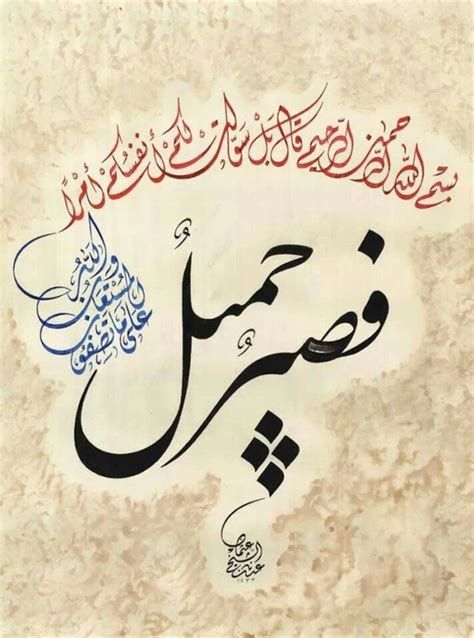 بسم الله الرحمن الرحيم قال بل سولت لكم أنفسكم أمرًا
فصبرٌ جميلٌ
والله
المستعان
على ما تصفون
عثمان
الشيخ
١٤٣٣